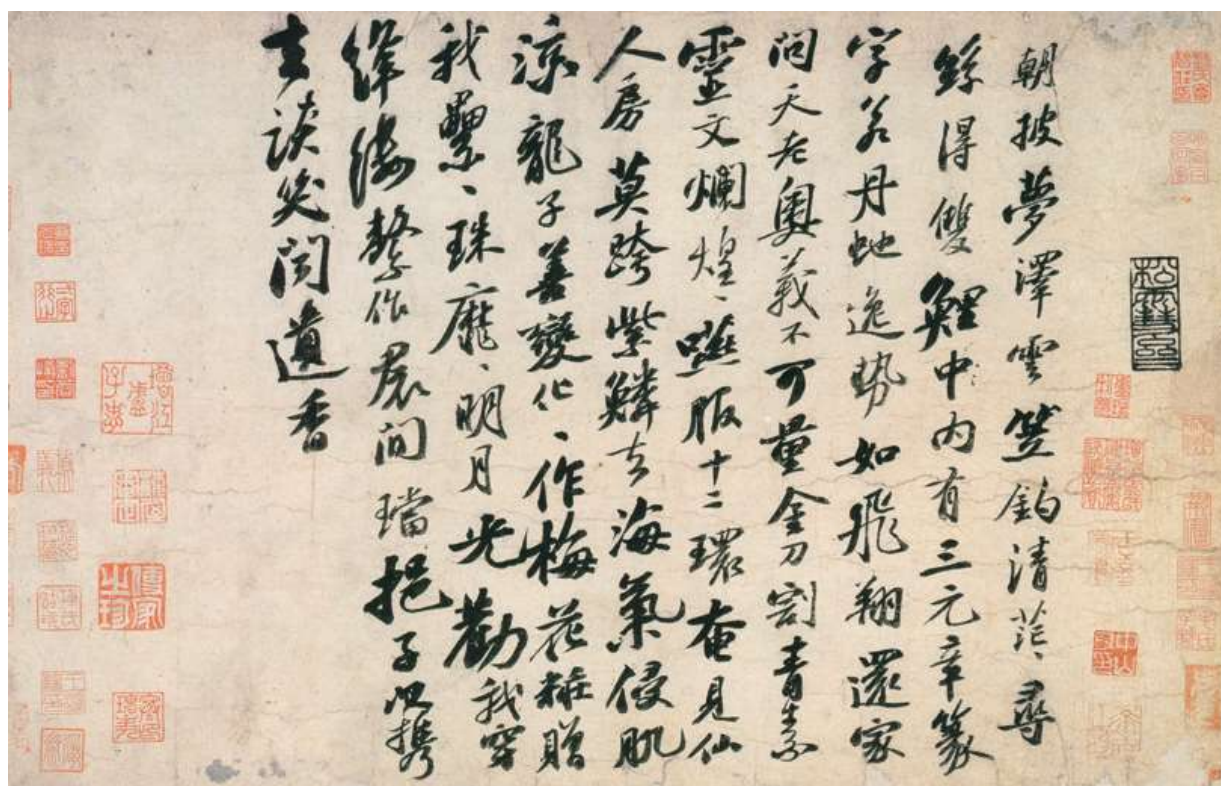 朝披夢澤雲笠釣清茫、尋
絲得雙鯉中内有三元章篆
字若丹虵逸勢如飛翔還家
問天老奧義不可量金刀割青素
靈文爛煌、嚥服十二環奄見仙
人房莫跨紫鱗去海氣侵肌
涼龍子善變化、作梅花粧贈
我纍、珠靡、明月光勸我穿
絳縷繫作裠間璫挹子以攜
去談笑聞遺香
傳家之珍